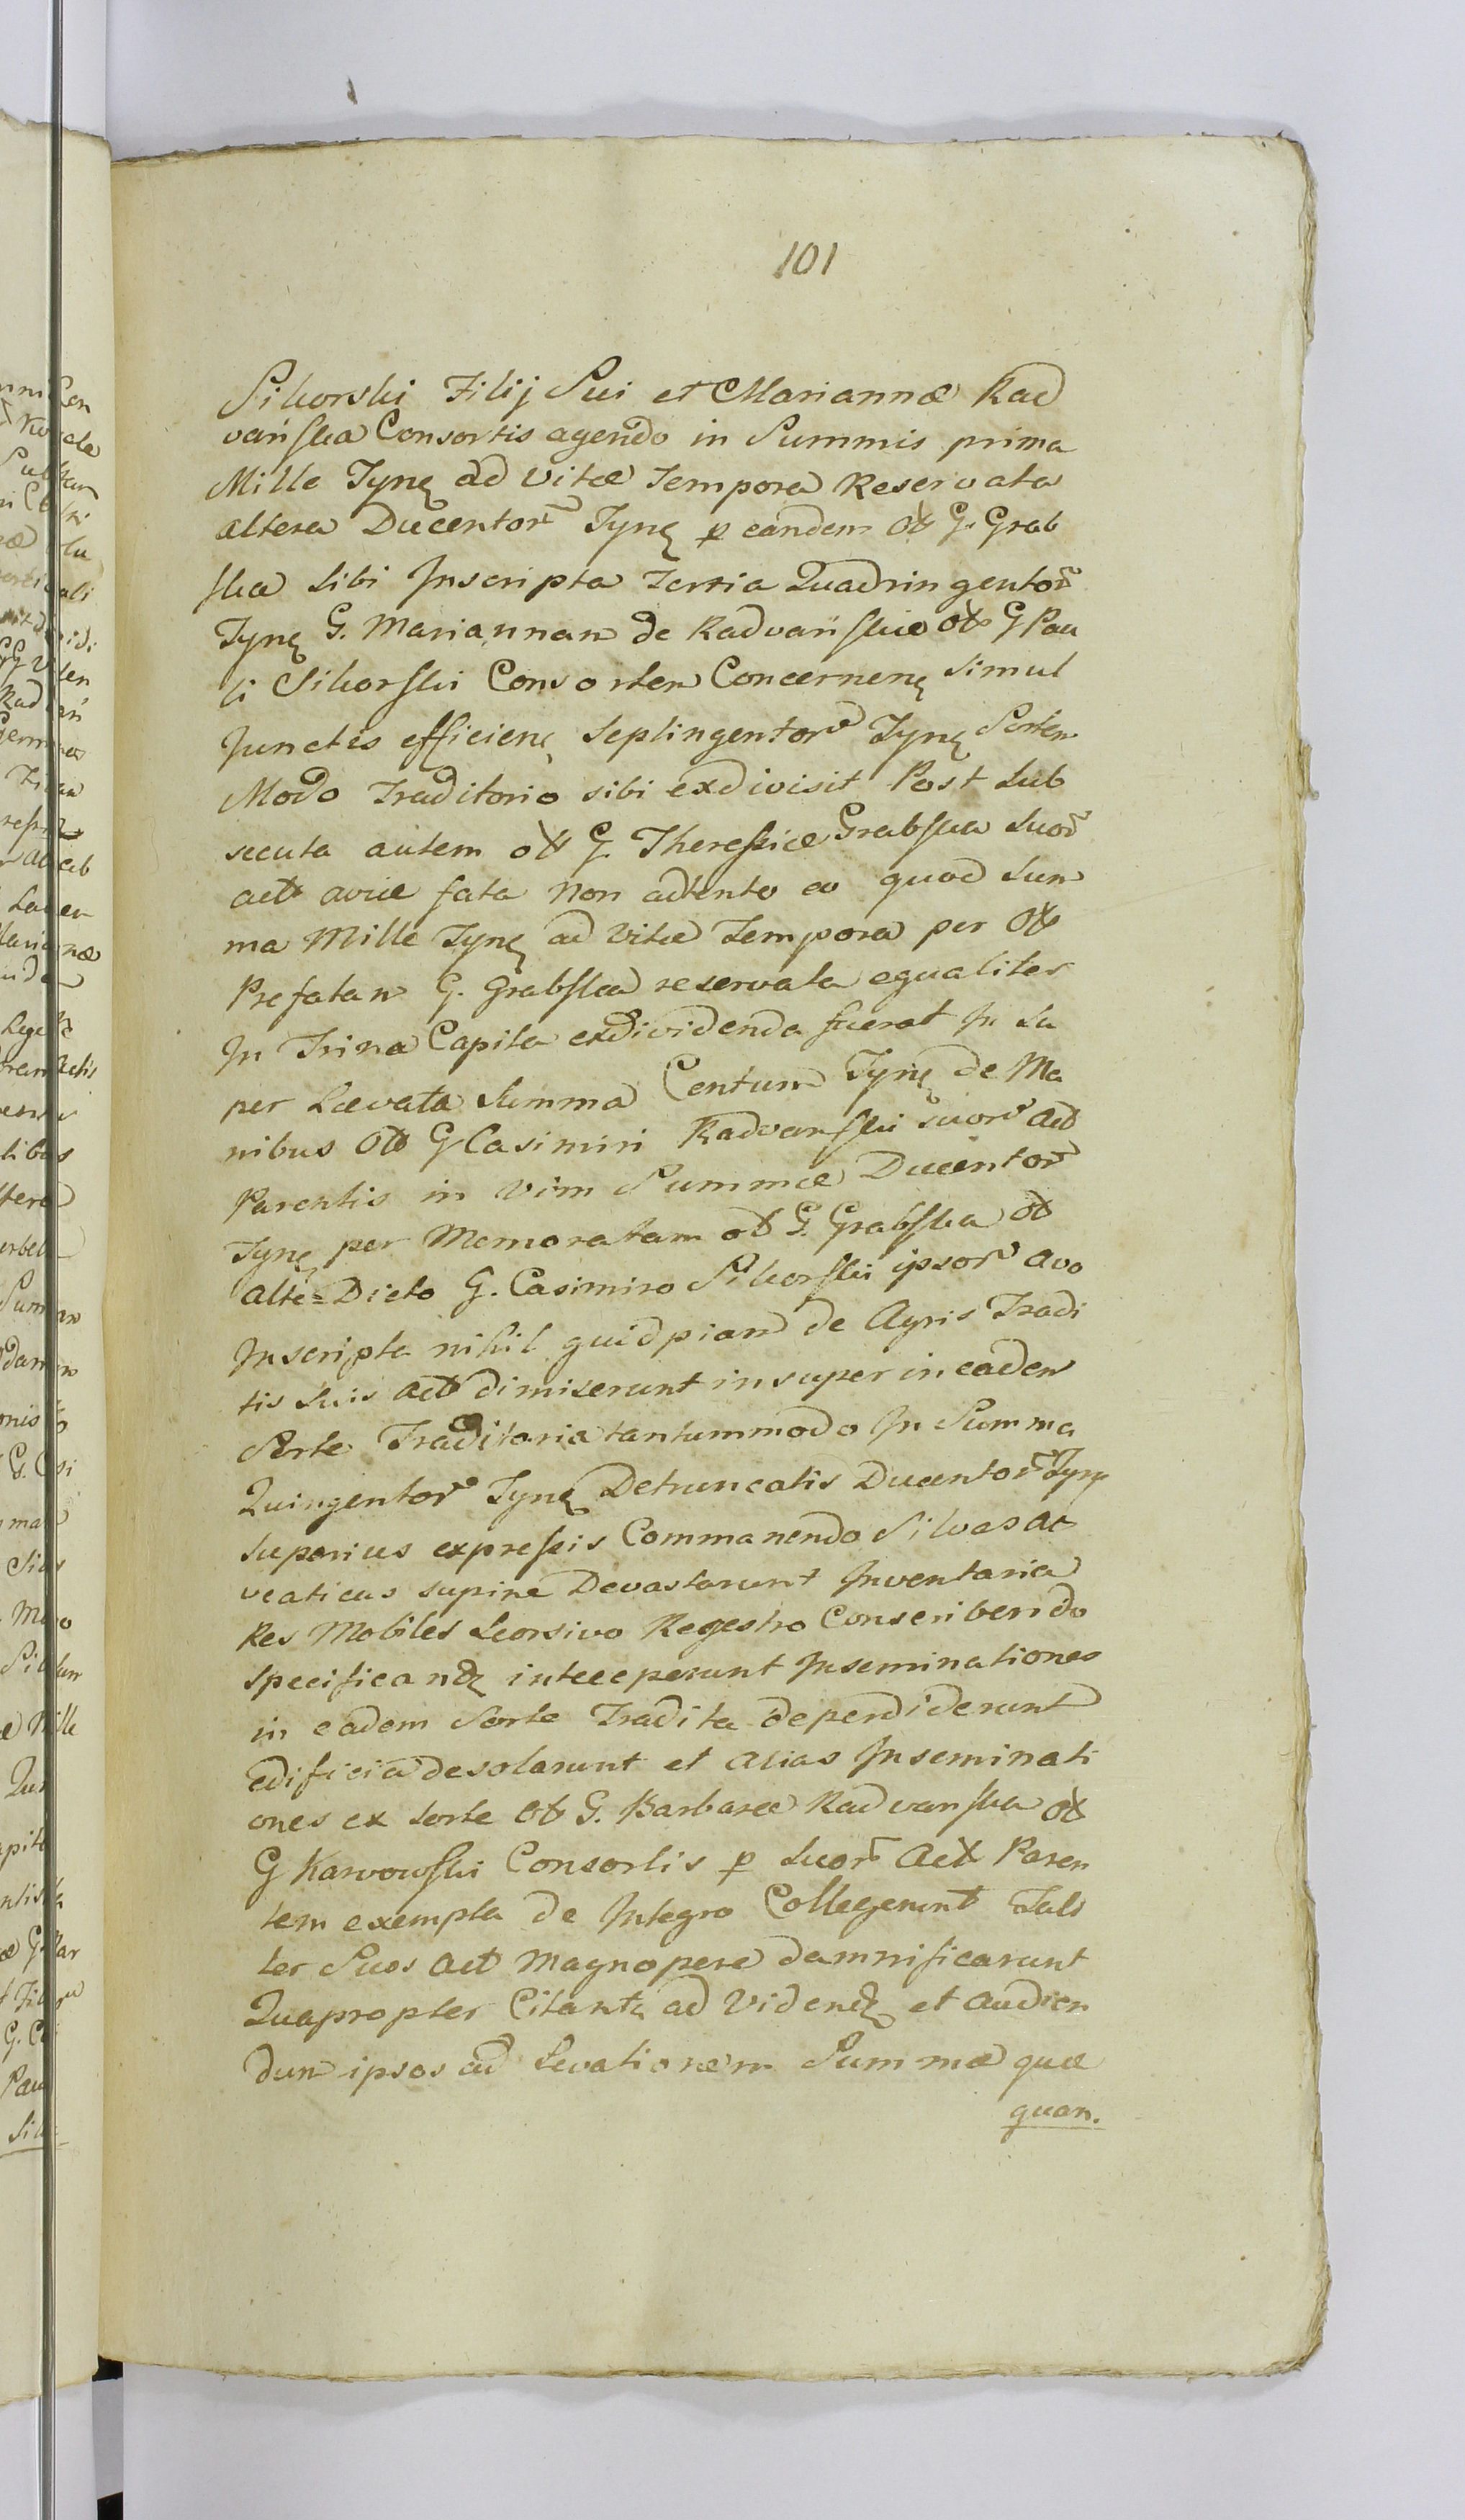 101
Sikorski Filij Sui et Mariannæ Rad
vańska Consortis agendo in Summis prima
Mille Tynę ad vitæ Tempora Reservata
altera Ducentor Tynę p eandem ol G. Grab
ska Sibi Inscripta Tertia Quadringentor
Tynę G. Mariannan de Radvańskie ol G Pau
li Sikorski Consorten Concernenę Simul
Junctis efficienę Septingentor Tynę Sorten
Modo Traditorio sibi exdivisit Post Sub
secuta autem ol G. Theressiæ Grabska Suor
act aviæ fata non adtento eo quod Sum
ma Mille Tynę ad Vitæ Tempora per ol
Prefatan G. Grabska reservata equaliter
In Trina Capita exdividenda fuerat In Su
per Levata Summa Centum Tynę de Ma
nibus ol G Casimiri Radvanski Suor act
Parentis in vim Summæ Ducentor
Tynę per Memoratam ol G. Grabska ol
alte=Dicto G. Casimiro Sikorski ipsor avo
Inscripta nihil quidpiam de Agris Tradi
tis Suis act dimiserunt insuper in eaden
Sorte Traditoria tantummodo In Summa
Quingentor Tynę Detruncatis Ducentor Tynę
Superius expressis Commanendo Silvas ac
veaticas supine Devastarunt Inventaria
Res Mobiles Seorsivo Regestro Conscribendo
specificandę interceperunt Inseminationes
in eadem Sorte Tradita deperdiderunt
edificia desolarunt et alias Inseminati
ones ex Sorte ol G. Barbaræ Radvanska ol
G Karwowski Consortis p Suor act Paren
tem exempta de Integro Collegerunt Tali
ter Suos act magnopere damnificarunt
Quapropter Citantę ad Videndę et audien
dum ipsos ad Levationem Summæ quæ
quan.